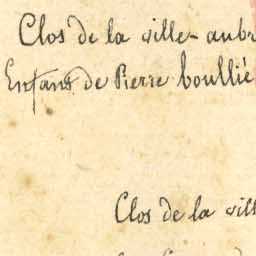 Clos de la ville-aubr
Enfans de Pierre boullié
Clos de la vill